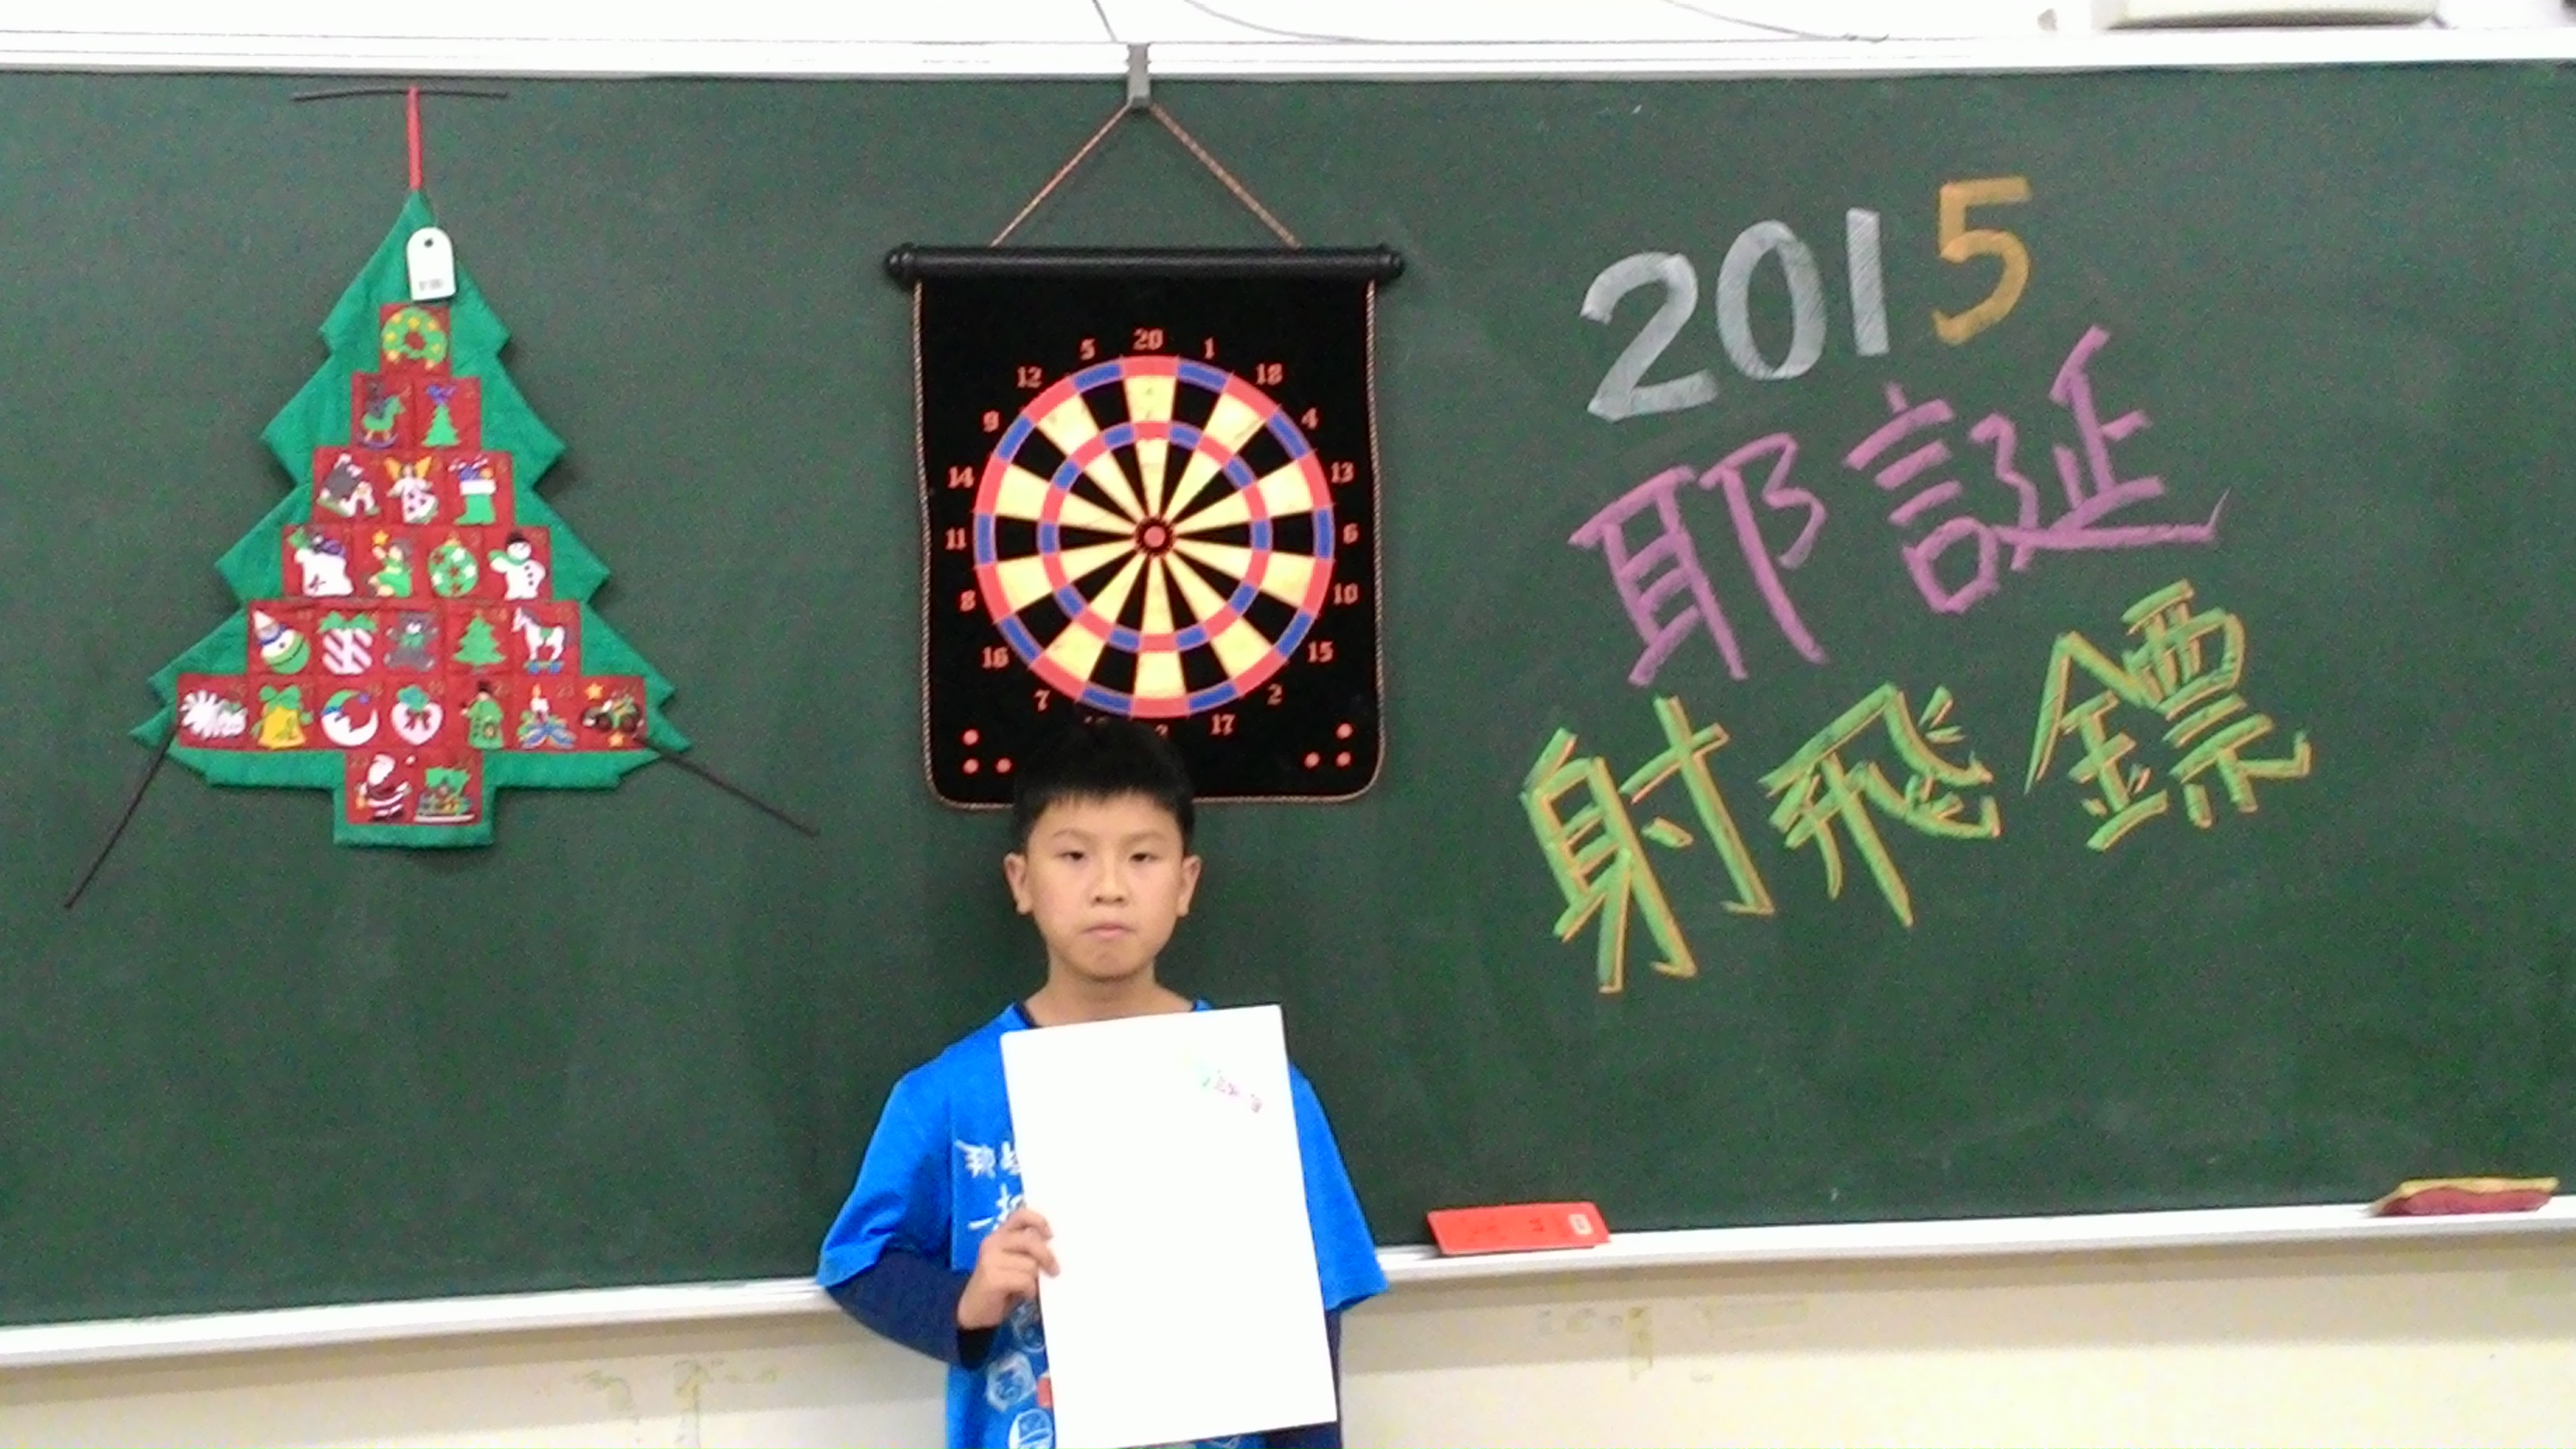 2015
耶誕
射飛鏢
20
5 1
12 18
9 4
14 13
11 6
8 10
16 15
7 2
17